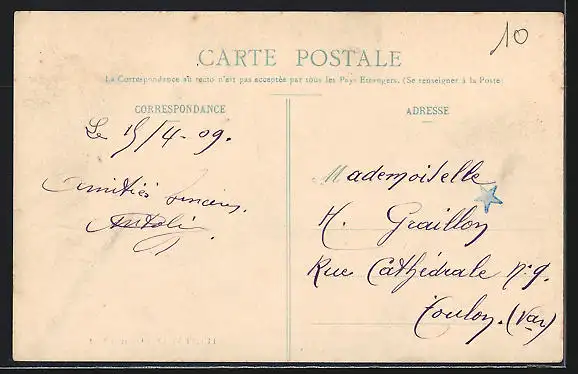 10
CARTE POSTALE
La Correspondance au recto n'est pas acceptée par tous les Pays Etrangers. (Se renseigner à la Poste)
CORRESPONDANCE
ADRESSE
Le 15/4-09.
Amitiés sincères.
Mademoiselle
H. Graillon
Rue Cathédrale n.9.
Toulon. (Var)